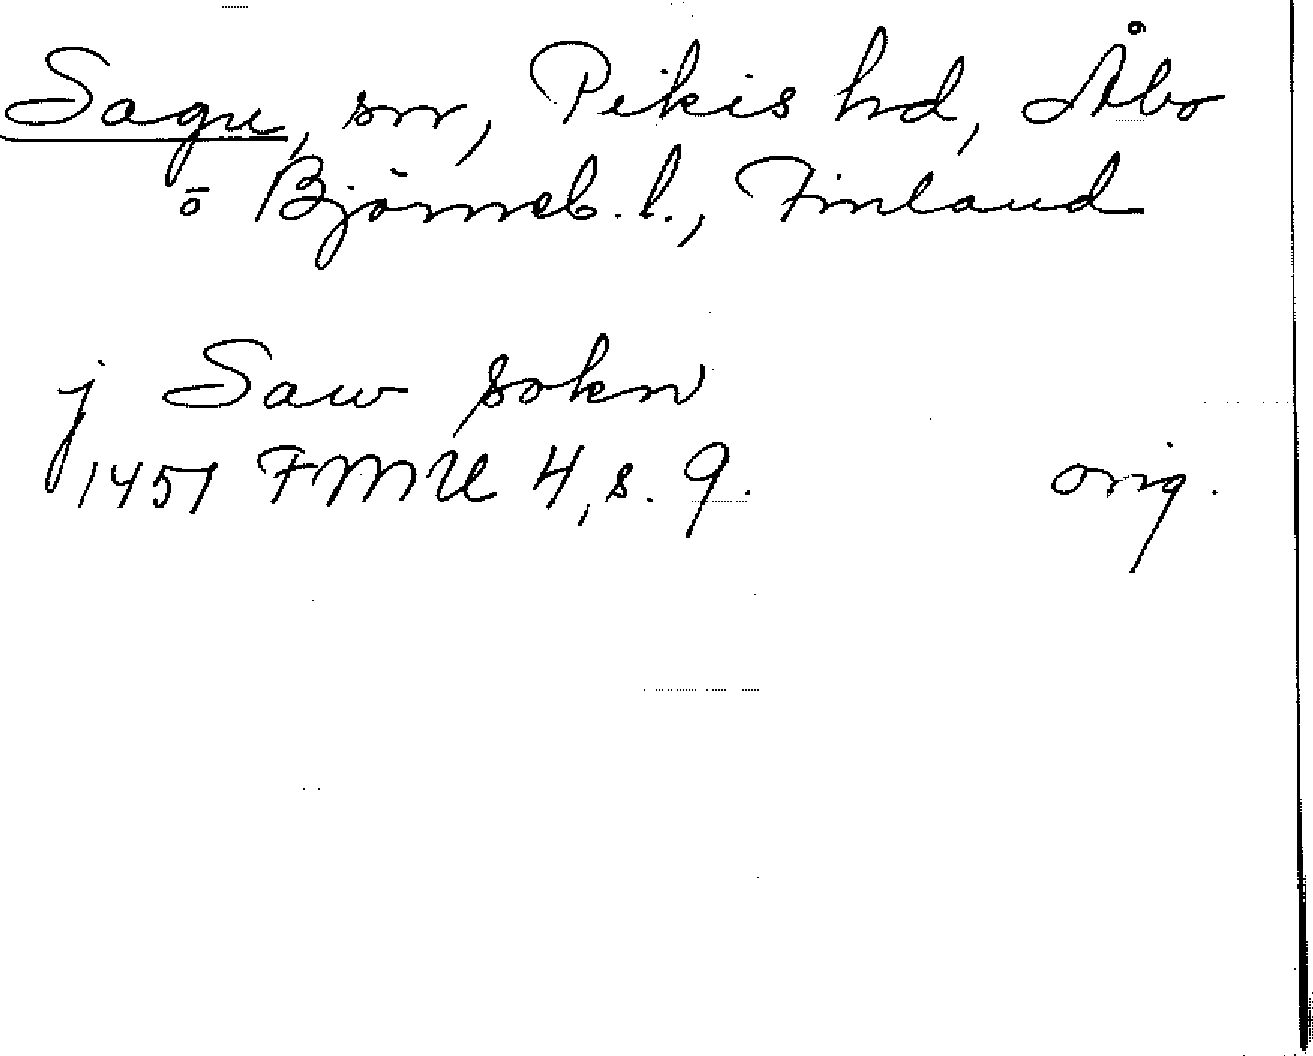 Sagu, sn, Pikis hd, Åbo
o Björneb. l., Finland
j Saw sokn
1451 FMU 4, s. 9. orig.